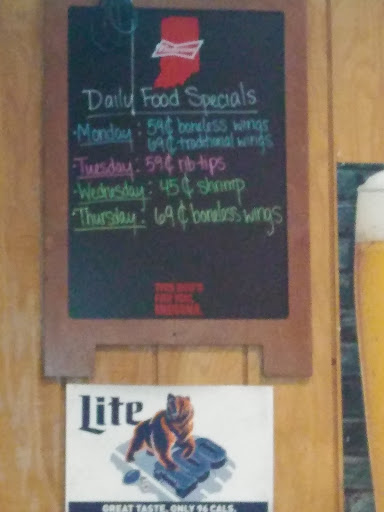 Budweiser
Daily Food Specials
·Monday: 59¢ boneless wings
69¢ traditional wings
·Tuesday: 59¢ rib tips
·Wednesday: 45¢ shrimp
·Thursday: 69¢ boneless wings
THIS BUD'S
FOR YOU,
INDIANA.
Lite
GREAT TASTE. ONLY 96 CALS.